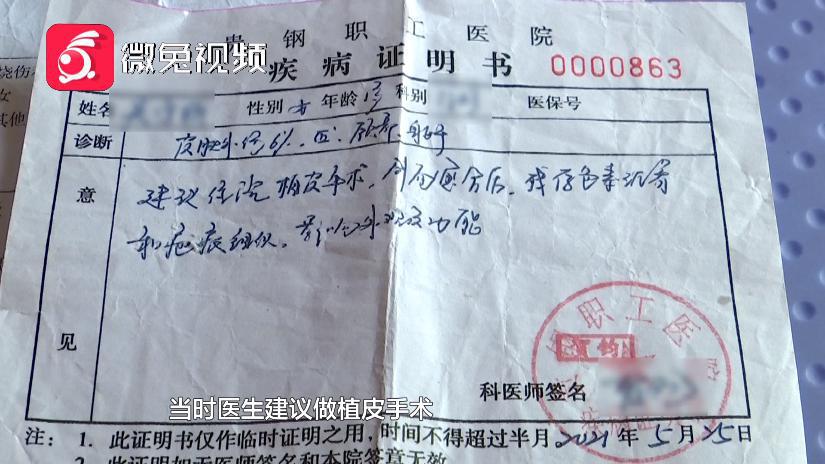 微兔视频
贵钢职工医院
疾病证明书 0000863
烧伤
女
其他
姓名 性别 女 年龄 13岁 科别 医保号
诊断
意 建议住院植皮手术,创面愈合后,残存色素沉着
和疤痕组织,影响外观及功能
见
职工医
科医师签名
当时医生建议做植皮手术
注:1. 此证明书仅作临时证明之用,时间不得超过半月 2021年5月25日
2. 此证明如无医师签名和本院签章无效